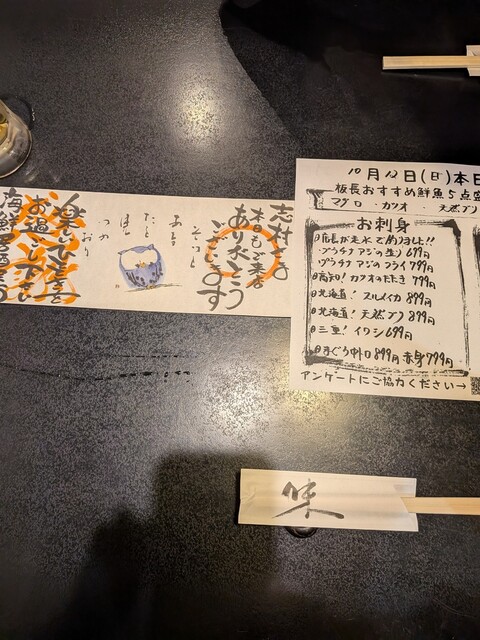 10月12日(日)本日
板長おすすめ鮮魚5点盛
マグロ ・カツオ ・天然ブリ
お刺身
板長が走水で釣りました!!
プラチナアジの造り 699円
プラチナアジのフライ 799円
高知! カツオのたたき 799円
北海道! スルメイカ 899円
北海道! 天然ブリ 899円
三重! イワシ 699円
まぐろ中トロ 899円 赤身 799円
アンケートにご協力ください→
本日もご来店
ありがとう
ございます
楽しいひとときを
お過ごし下さい
味